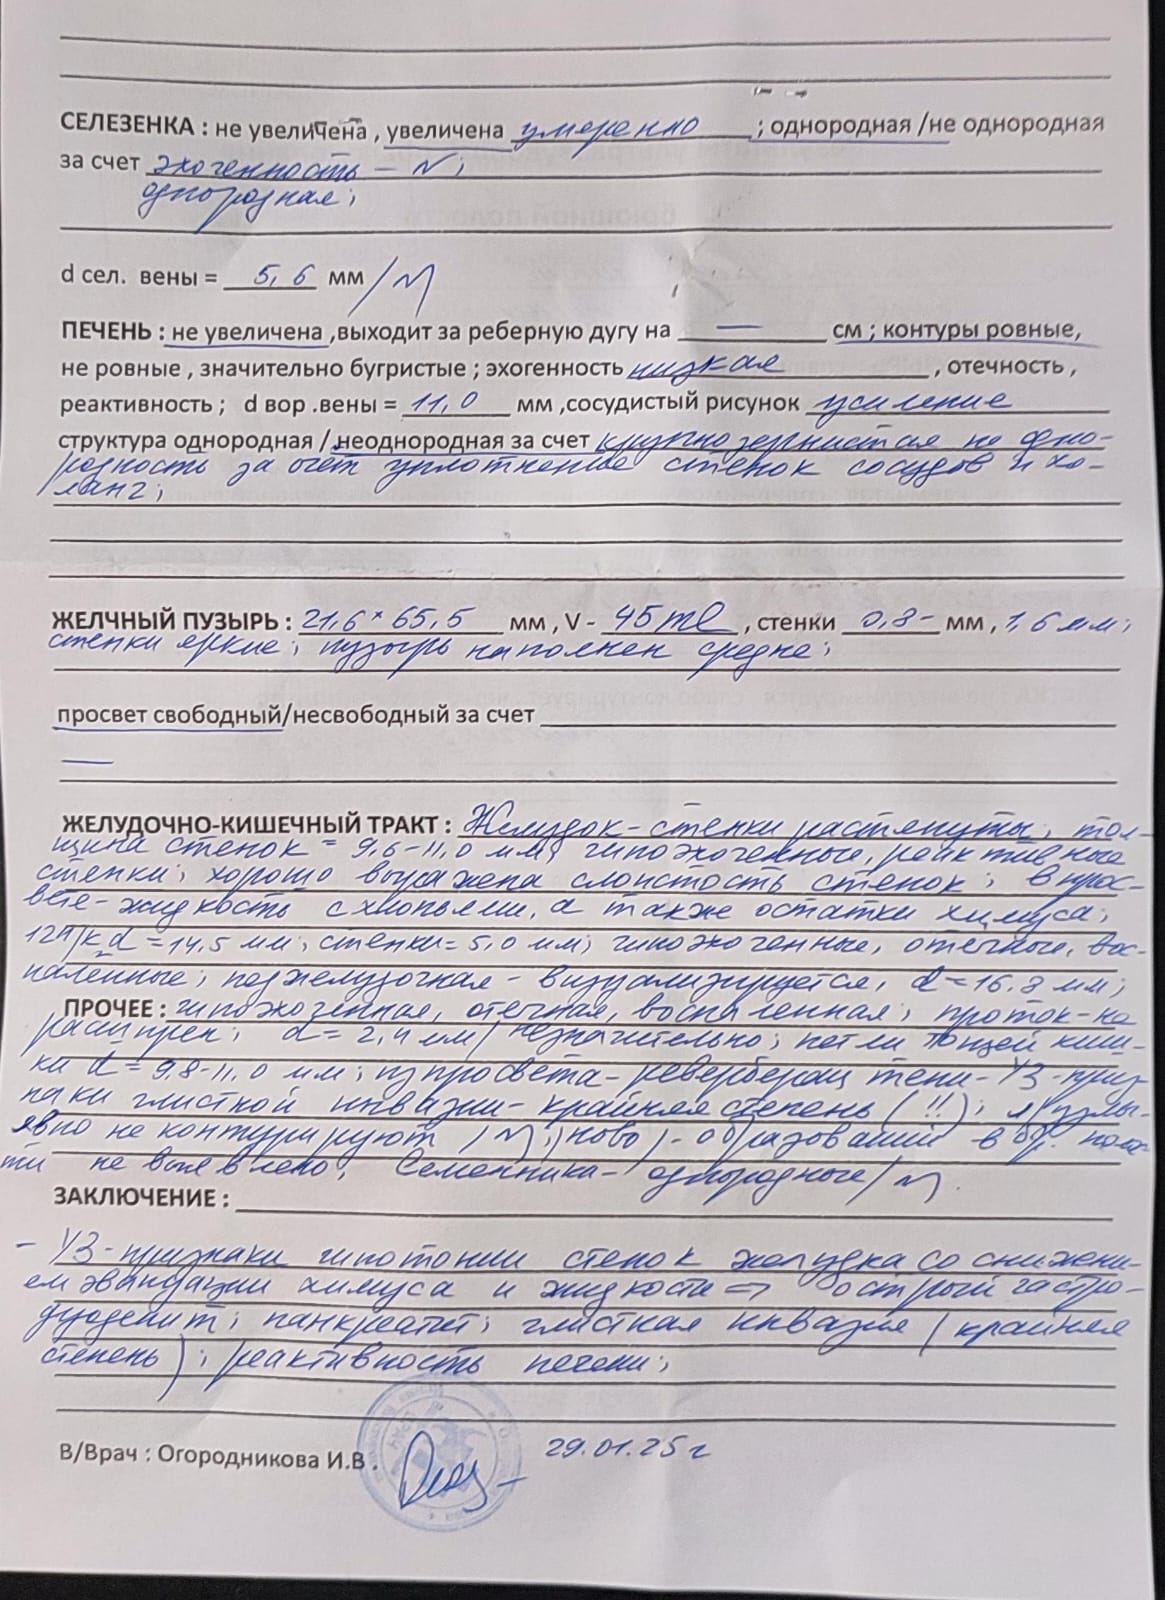 СЕЛЕЗЕНКА : не увеличена , увеличена умеренно ; однородная /не однородная
за счет эхогенность – N ;
однородная ;
d сел. вены = 5,6 мм / N
ПЕЧЕНЬ : не увеличена ,выходит за реберную дугу на — см ; контуры ровные,
не ровные , значительно бугристые ; эхогенность низкая , отечность ,
реактивность ; d вор .вены = 11,0 мм ,сосудистый рисунок усиление
структура однородная / неоднородная за счет крупнозернистая не одно-
родность за счёт уплотнение стенок сосудов и хо-
ланг ;
ЖЕЛЧНЫЙ ПУЗЫРЬ : 21,6 × 65,5 мм , V - 45 ml , стенки 0,8 – мм , 1,6 мм ;
стенки яркие ; пузырь наполнен средне ;
просвет свободный/несвободный за счет
—
ЖЕЛУДОЧНО-КИШЕЧНЫЙ ТРАКТ : Желудок - стенки растянуты, тол-
щина стенок = 9,6-11,0 мм, гипоэхогенные, реактивные
стенки ; хорошо выражена слоистость стенок ; в прос-
вете - жидкость с хлопьями, а также остатки химуса ;
12п/к d = 14,5 мм ; стенки = 5,0 мм ; гипоэхогенные, отечные, вос-
паленные ; поджелудочная - визуализируется, d = 16,8 мм ;
ПРОЧЕЕ : гипоэхогенная, отечная, воспаленная ; проток - не
расширен ; d = 2,4 мм / незначительно ; петли тощей киш-
ки d = 9,8-11,0 мм ; из просвета - ревербер. тени - УЗ-приз-
наки глистной инвазии - крайняя степень (!!) ; л/узлы
явно не контурируют / N ; (ново) - образований в бр. полос-
ти не выявлено ; Семенники - однородные / N .
ЗАКЛЮЧЕНИЕ :
- УЗ-признаки гипотонии стенок желудка со снижени-
ем эвакуации химуса и жидкости => острый гастро-
дуоденит ; панкреатит ; глистная инвазия (крайняя
степень) ; реактивность печени ;
В/Врач : Огородникова И.В .
29.01.25 г